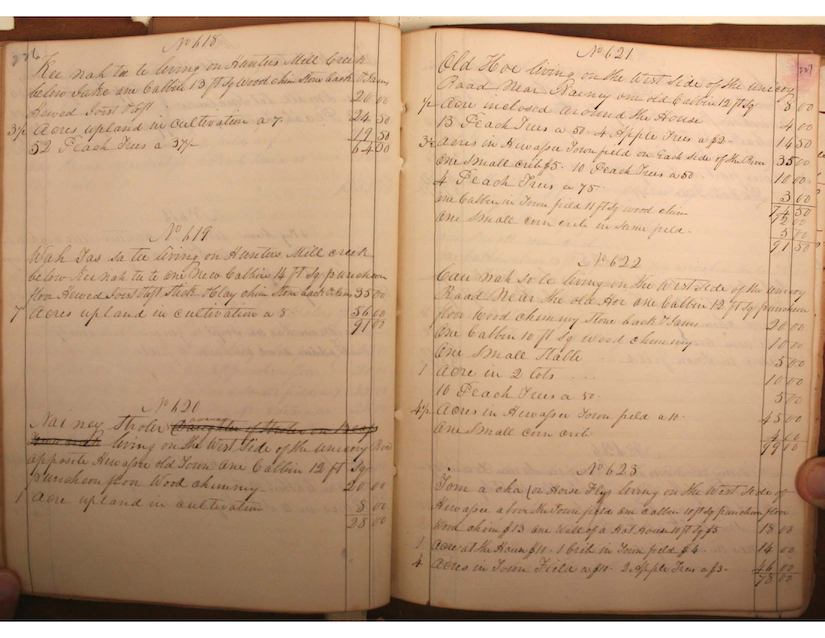 226
No 618
Kee nah tee te living on Hunters Mill Creek
below Juke one Cabbin 13 ft Sq Wood chim Stone back & Jams
Hewed Joist & loft 20 00
3½ Acres upland in cultivation a 7. 24 50
52 Peach Trees a 37½ 19 50
64 00
No 619
Wah Tas sa tee living on Hunters Mill creek
below Kee nah tee te one New Cabbin 14 ft Sq puncheon
floor Hewed Joist & loft Stick & Clay chim Stone back & Jams 35 00
7 Acres upland in cultivation a 8 56 00
91 00
No 620
Nai ney Stroler
living on the West Side of the unicoy Road
opposite Hewassee old Town one Cabbin 12 ft Sq
puncheon floor Wood chimny 20 00
1 Acre upland in cultivation 8 00
28 00
227
No 621
Old Hoe living on the West Side of the unicoy
Road Near Rainey one old Cabbin 12 ft Sq 8 00
½ Acre inclosed around the House 4 00
13 Peach Trees a 50 4 Apple Trees a $2 14 50
3½ Acres in Hewassee Town field on Each Side of the River 35 00
One Small crib $5. 10 Peach Trees a 50 10 00
4 Peach Trees a 75 3 00
74 50
one Cabbin in Town field 11 ft Sq wood chim
One Small corn crib in Same field 5 00
91 50
No 622
Cau nah so le living on the West Side of the unicoy
Road Near the old Hoe one Cabbin 12 ft Sq puncheon
floor Wood chimny Stone back & Jams 20 00
One Cabbin 10 ft Sq Wood chimny 10 00
One Small Stable 5 00
1 Acre in 2 lots 10 00
10 Peach Trees a 50 5 00
4½ Acres in Hewassee Town field a 10 45 00
One Small corn crib 4 00
99 00
No 623
Tom a cha (or Horse Fly) living on the West Side of
Hewassee above the Town field one Cabbin 10 ft Sq puncheon floor
Wood chim $13 one Wall of a Hot House 10 ft Sq $5 18 00
1 Acre at the House $10. 1 Crib in Town field $4 14 00
4 Acres in Town Field a $10. 2 Apple Trees a $3 46 00
78 00